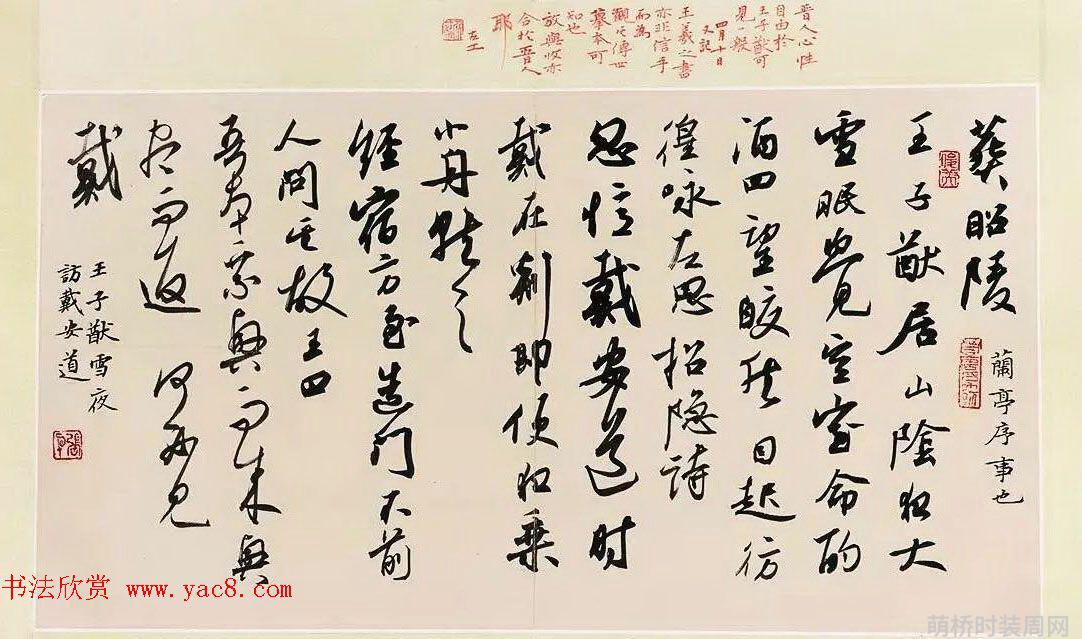 晋人心性
自由於
王子猷可
見一般
四月十日
又記
王羲之書
亦非信手
而為
觀其傳世
摹本可
知也
放與收亦
合於晋人
耶
葬昭陵
蘭亭序事也
王子猷居山陰夜大
雪眠覺空室命酌
酒四望皎然因起彷
徨咏左思招隐詩
忽憶戴安道时
戴在剡即便夜乘
小舟就之
經宿方至造門不前
人問其故王曰
吾本乘興而来興
尽而返何必見
戴
王子猷雪夜
訪戴安道
书法欣赏 www.yac8.com
萌桥时装周网